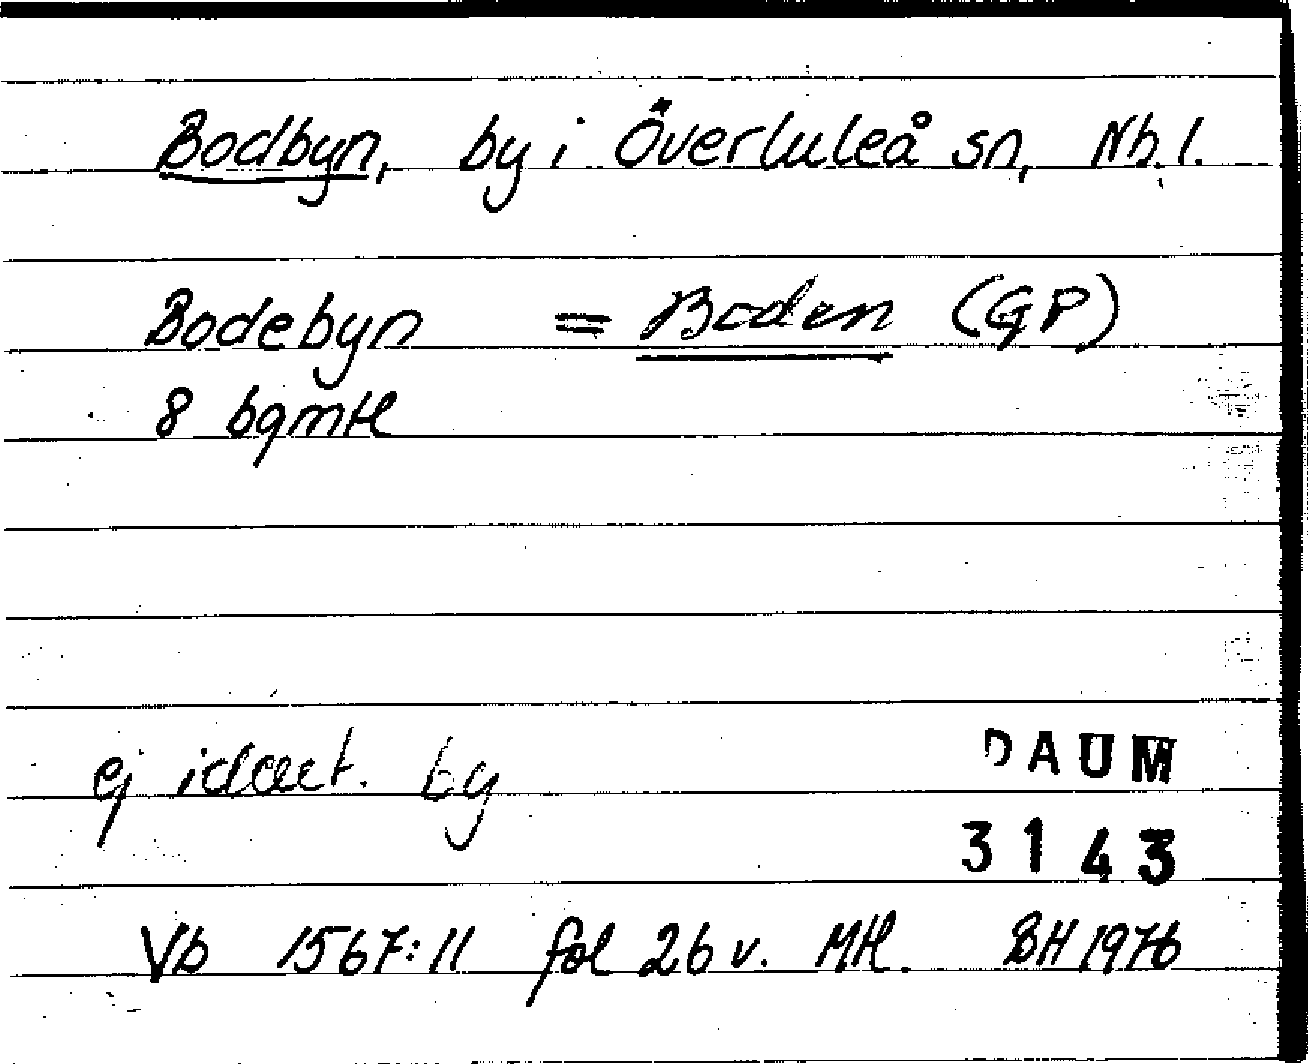 Bodbyn, by i Överluleå sn, Nb. l.
Bodebyn = Boden (GP)
8 bgmtl
ej ident. by
DAUM
3143
Vb 1567:11 fol 26 v. Mtl. BH 1976